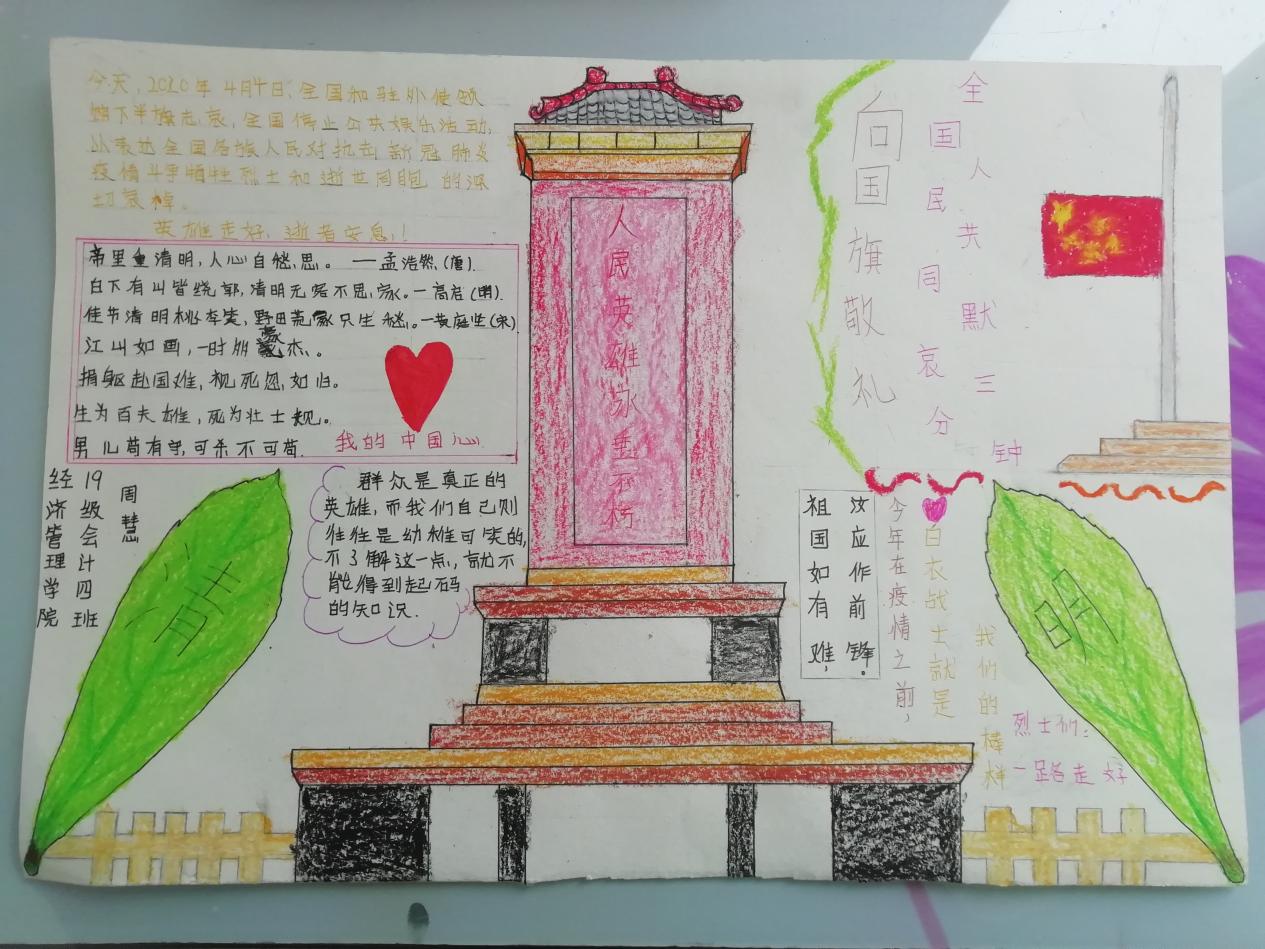 今天,2020年4月4日,全国和驻外使领
馆下半旗志哀,全国停止公共娱乐活动,
以表达全国各族人民对抗击新冠肺炎
疫情斗争牺牲烈士和逝世同胞的深
切哀悼。
英雄走好,逝者安息!!
帝里重清明,人心自愁思。—孟浩然(唐).
白下有山皆绕郭,清明无客不思家。—高启(明).
佳节清明桃李笑,野田荒冢只生愁。—黄庭坚(宋)
江山如画,一时多少豪杰。
捐躯赴国难,视死忽如归。
生为百夫雄,死为壮士规。
男儿苟有守,可杀不可苟.
我的中国心
经济管理学院
19级会计四班
周慧
群众是真正的
英雄,而我们自己则
往往是幼稚可笑的,
不了解这一点,就不
能得到起码
的知识.
清
人民英雄永垂不朽
向国旗敬礼
全国人民共同默哀三分钟
祖国如有难,
汝应作前锋。
今年在疫情之前,
白衣战士就是
我们的榜样
烈士们:
一路走好
明